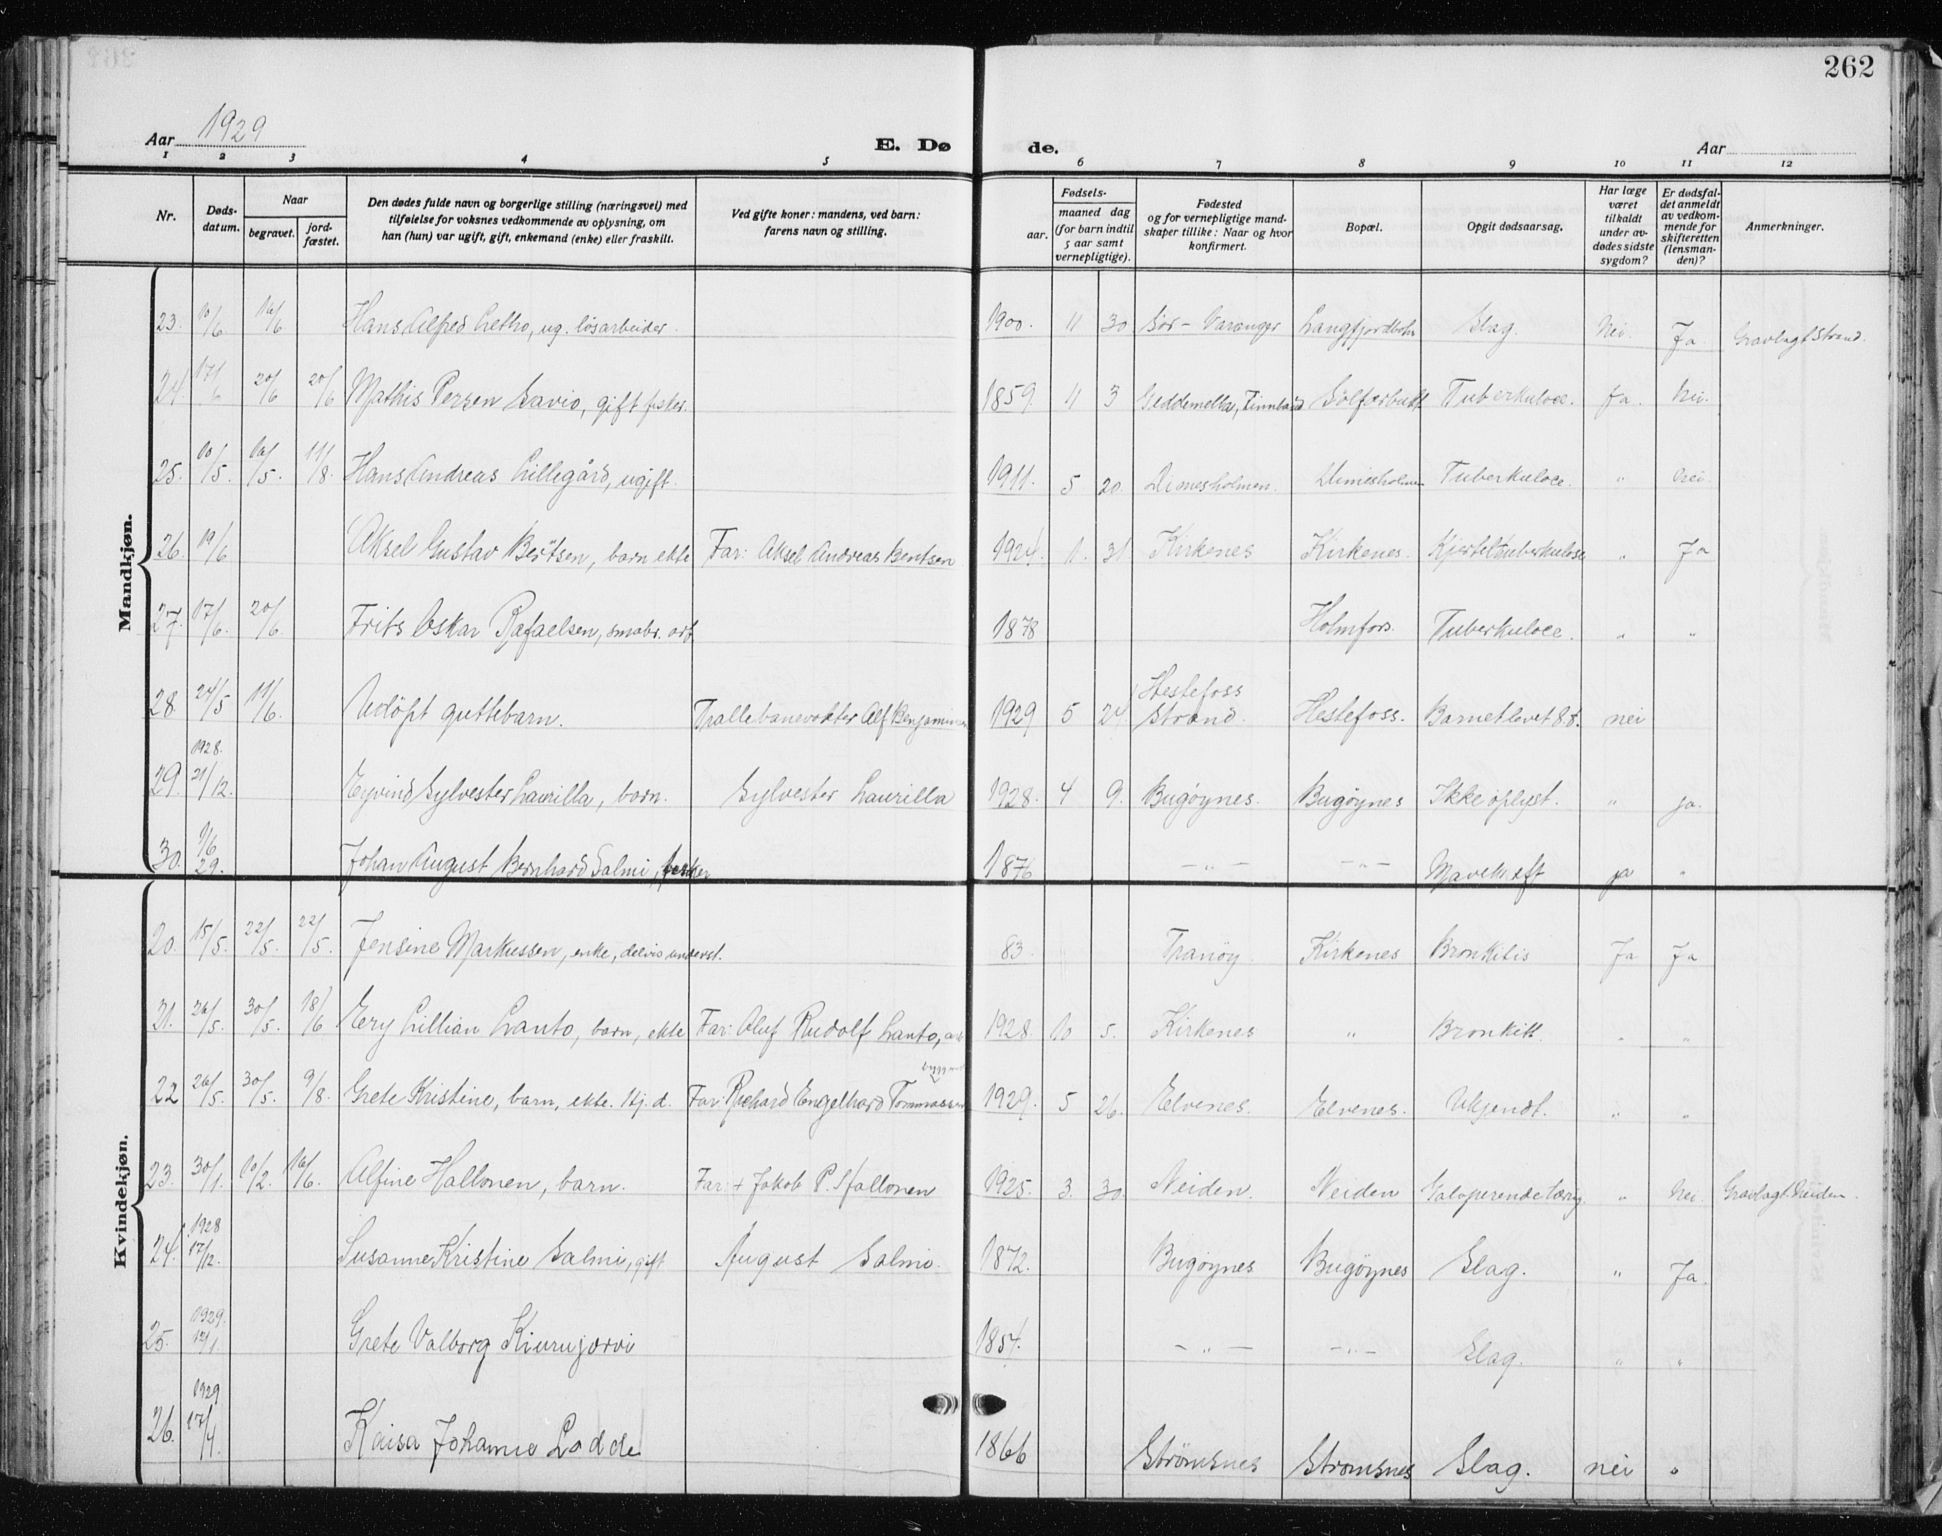 262
Aar 1929
E. Dø
de.
Aar
1 2 3 4 5 6 7 8 9 10 11 12
Nr.
Døds-
datum.
Naar
begravet.
jord-
fæstet.
Den dødes fulde navn og borgerlige stilling (næringsvei) med
tilføielse for voksnes vedkommende av oplysning, om
han (hun) var ugift, gift, enkemand (enke) eller fraskilt.
Ved gifte koner: mandens, ved barn:
farens navn og stilling.
Fødsels-
aar.
maaned dag
(for barn indtil
5 aar samt
vernepligtige).
Fødested
og for vernepligtige mand-
skaper tillike: Naar og hvor
konfirmert.
Bopæl.
Opgit dødsaarsag.
Har læge
været
tilkaldt
under av-
dødes sidste
sygdom?
Er dødsfal-
det anmeldt
av vedkom-
mende for
skifteretten
(lensman-
den)?
Anmerkninger.
Mandkjøn.
23. 10/6 16/6 Hans Alfred, ug. løsarbeider. 1900. 11 30 Sør-Varanger Slag. Nei. Ja. Gravlagt Strand.
24. 17/6 20/6 20/6 Mathis Persen Savio, gift fisker. 1859. 11 3 Tuberkulose. Ja. Nei.
25. 10/5. 16/5. 11/8. Hans Andreas Lillegård, ugift. 1911. 5 20. Tuberkulose. " Nei.
26. 19/6 Aksel Gustav Bentsen, barn ekte Far: Aksel Andreas Bentsen 1924. 1. 31 Kirkenes Kirkenes. Kjerteltuberkulose " Ja
27. 17/6. 20/6. Frits Oskar Rafaelsen, 1878 Holmfors. Tuberkulose. " "
28 24/5 11/6. Udöpt guttebarn. Trallebanevokter Alf Benjaminsen 1929 5 24. Hestefoss
Strand. Hestefoss. Barnet levet 8 d. nei
1928.
29. 21/12. Eyvind Sylvester Laurilla, barn. Sylvester Laurilla 1928. 4 9. Bugöynes. Bugöynes Ikke oplyst. " ja.
30. 9/6
29. Johan August Bernhard Salmi, fisker 1876 - " - - " - Mavekreft ja "
Kvindekjøn.
20. 15/5. 22/5. 22/5. Jensine Markussen, enke, delvis underst. 83. Tranöy. Kirkenes Bronkitis Ja Ja
21. 26/5. 30/5. 18/6 Ery Lillian Lanto, barn, ekte Far: Oluf Rudolf Lanto, 1928 10 5. Kirkenes " Bronkitt. " "
22 26/5. 30/5. 9/8. Grete Kristine, barn, ekte. Far: Richard Engelhard Tommassen 1929. 5 26. Elvenes. Elvenes. Ukjendt. " "
23. 30/1. 10/2. 16/6. Alfine Hallonen, barn. Far: + Jakob P. Hallonen 1925. 3. 30. Neiden. Neiden Galoperende tæring " Nei. Gravlagt Neiden.
1928
24. 17/12. Susanne Kristine Salmi, gift August Salmi. 1872. Bugöynes Bugöynes Slag. " Ja.
1929.
25. Grete Valborg Kiurujarvi 1854. - " - - " - Slag. " "
1929
26. 17/4. Kaisa Johanne Ladde 1866 Strömsnes Strömsnes Slag. nei "